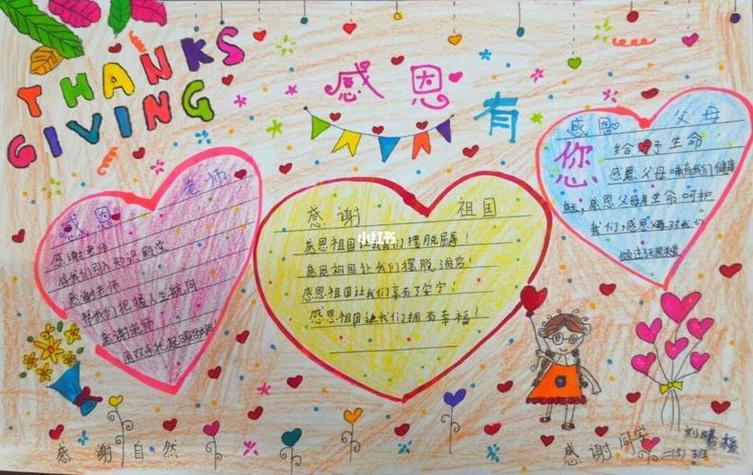 THANKS
GIVING
感恩有您
感恩老师
感谢老师
将我们引入知识殿堂
感谢老师
帮我们把握人生航向
感谢老师
感谢 祖国
小红书
感恩祖国让我们摆脱屈辱！
感恩祖国让我们摆脱贫穷！
感恩祖国让我们享有了安宁！
感恩祖国让我们拥有幸福！
感恩 父母
给予生命
感恩父母哺育我们健康
感恩父母是生命呵护
我们，感恩父母对我们
感谢自然
感谢同学